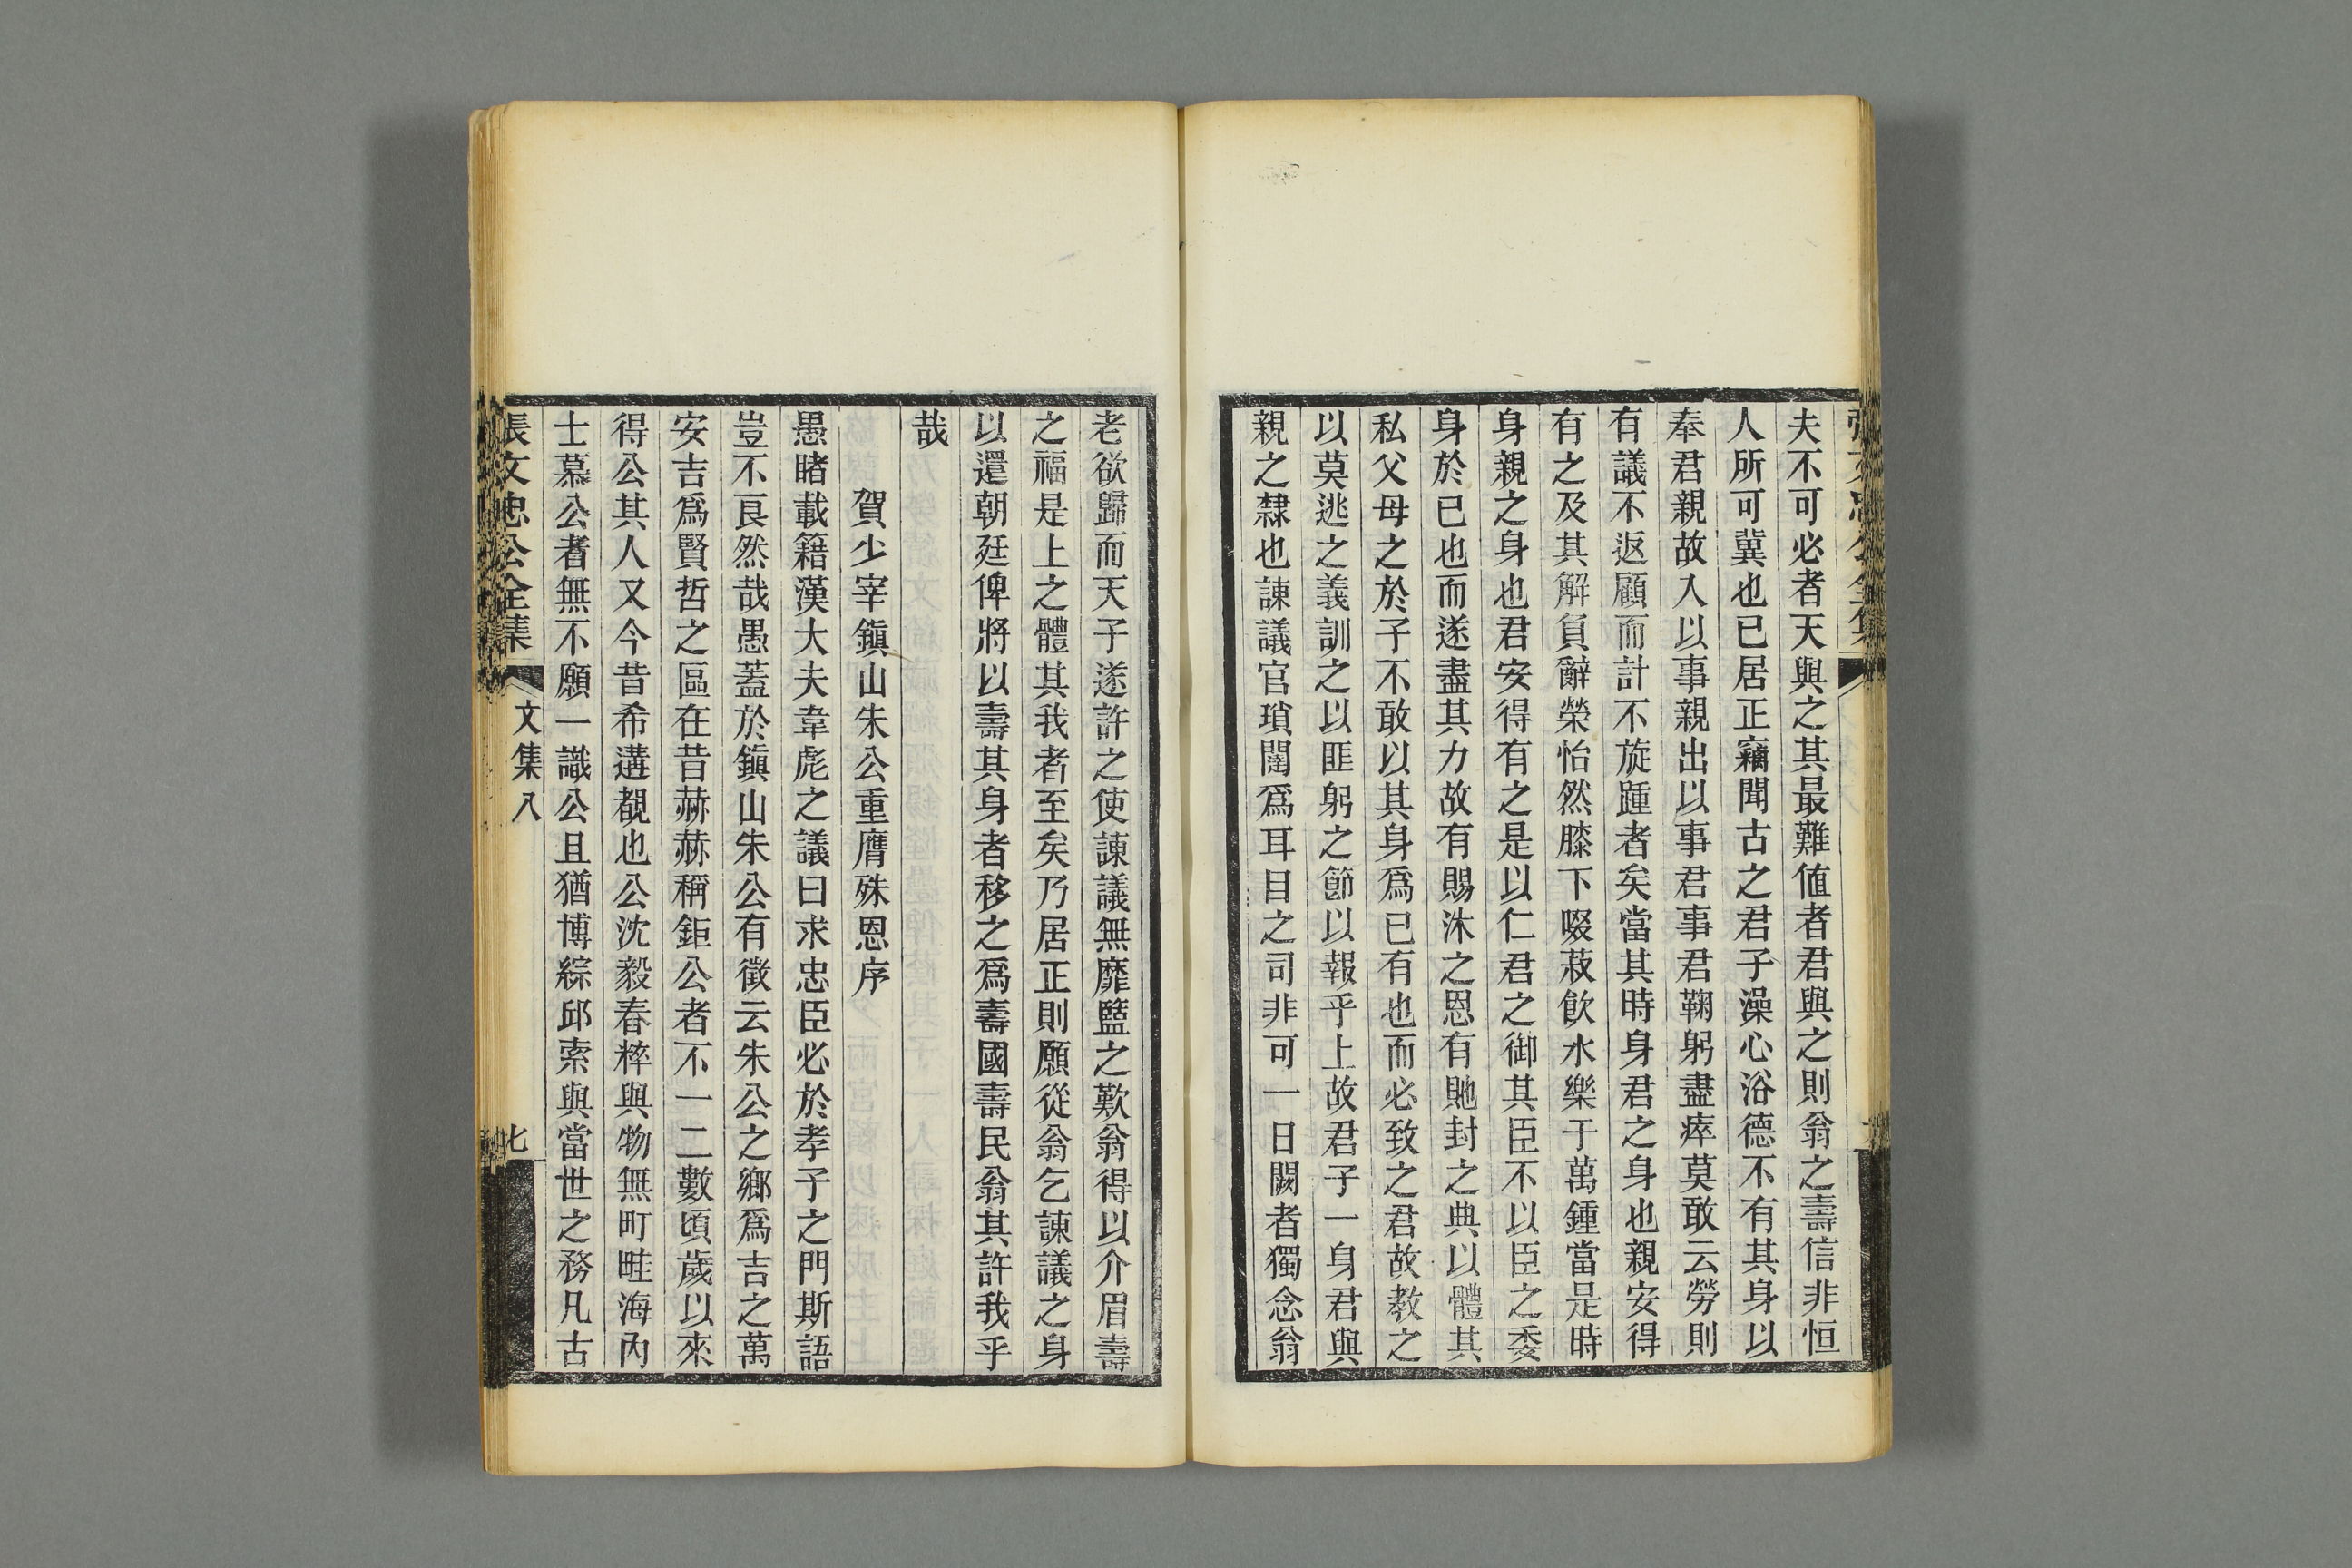 張文忠公全集
夫不可必者天與之其最難値者君與之則翁之壽信非恒
人所可冀也已居正竊聞古之君子澡心浴德不有其身以
奉君親故入以事親出以事君事君鞠躬盡瘁莫敢云勞則
有議不返顧而計不旋踵者矣當其時身君之身也親安得
有之及其解負辭榮怡然膝下啜菽飮水樂于萬鍾當是時
身親之身也君安得有之是以仁君之御其臣不以臣之委
身於已也而遂盡其力故有賜沐之恩有貤封之典以體其
私父母之於子不敢以其身爲已有也而必致之君故教之
以莫逃之義訓之以匪躬之節以報乎上故君子一身君與
親之隸也諫議官瑣闥爲耳目之司非可一日闕者獨念翁
老欲歸而天子遂許之使諫議無靡盬之歎翁得以介眉壽
之福是上之體其我者至矣乃居正則願從翁乞諫議之身
以還朝廷俾將以壽其身者移之爲壽國壽民翁其許我乎
哉
賀少宰鎭山朱公重膺殊恩序
愚睹載籍漢大夫韋彪之議曰求忠臣必於孝子之門斯語
豈不良然哉愚蓋於鎭山朱公有徵云朱公之鄉爲吉之萬
安吉爲賢哲之區在昔赫赫稱鉅公者不一二數頃歲以來
得公其人又今昔希遘覩也公沈毅春粹與物無町畦海內
士慕公者無不願一識公且猶博綜邱索與當世之務凡古
張文忠公全集
文集八
七